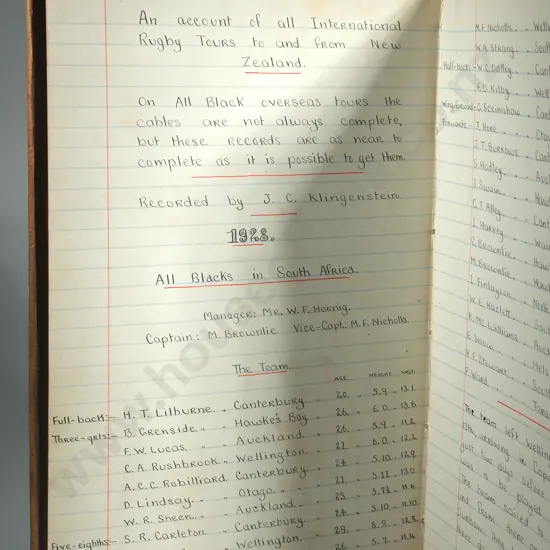 An account of all International
Rugby Tours to and from New
Zealand.
On All Black overseas tours the
cables are not always complete,
but these records are as near to
complete as it is possible to get them.
Recorded by J. C. Klingenstein.
1928.
All Blacks in South Africa.
Manager: Mr. W. F. Hornig.
Captain: M. Brownlie Vice-Capt. M. F. Nicholls.
The Team.
AGE HEIGHT WGT.
Full-back:- H. T. Lilburne .. Canterbury .. 20 .. 5.9 .. 13.1
Three-qrts:- B. Grenside .. Hawke's Bay .. 26 .. 6.0 .. 13.6
F. W. Lucas .. Auckland .. 26 .. 5.9 .. 11.2
C. A. Rushbrook .. Wellington .. 21 .. 6.0 .. 12.2
A. C. C. Robilliard .. Canterbury .. 24 .. 5.10 .. 12.9
D. Lindsay .. Otago .. 21 .. 5.11 .. 13.0
W. R. Sheen .. Auckland .. 25
Five-eighths:- S. R. Carleton .. Canterbury .. 24 .. 5.10 .. 11.10
Wellington .. 29 .. 5.8
26 .. 5.7
M. F. Nicholls .. Well
W. A. Strang .. Sout
Half-back:- W. C. Dalley .. Cant
F. D. Kilby .. Well
Wing-forward:- G. Scrimshaw .. Cant
Forwards:- J. Hore .. Otag
J. T. Burrows .. Cant
S. Hadley .. Auc
J. Swain .. Haw
G. T. Alley .. Cant
L. Harvey .. Wai
C. Brownlie .. Haw
M. Brownlie .. Haw
I. Finlayson .. Nort
W. E. Hazlett .. Sout
R. Mc. Williams .. Auck
E. Snow .. Nels
R. T. Stewart .. South
P. Ward .. 
The team left Welling
arriving in Cap
just two days before
was to be played
the team sailed
and from there
Durban, they